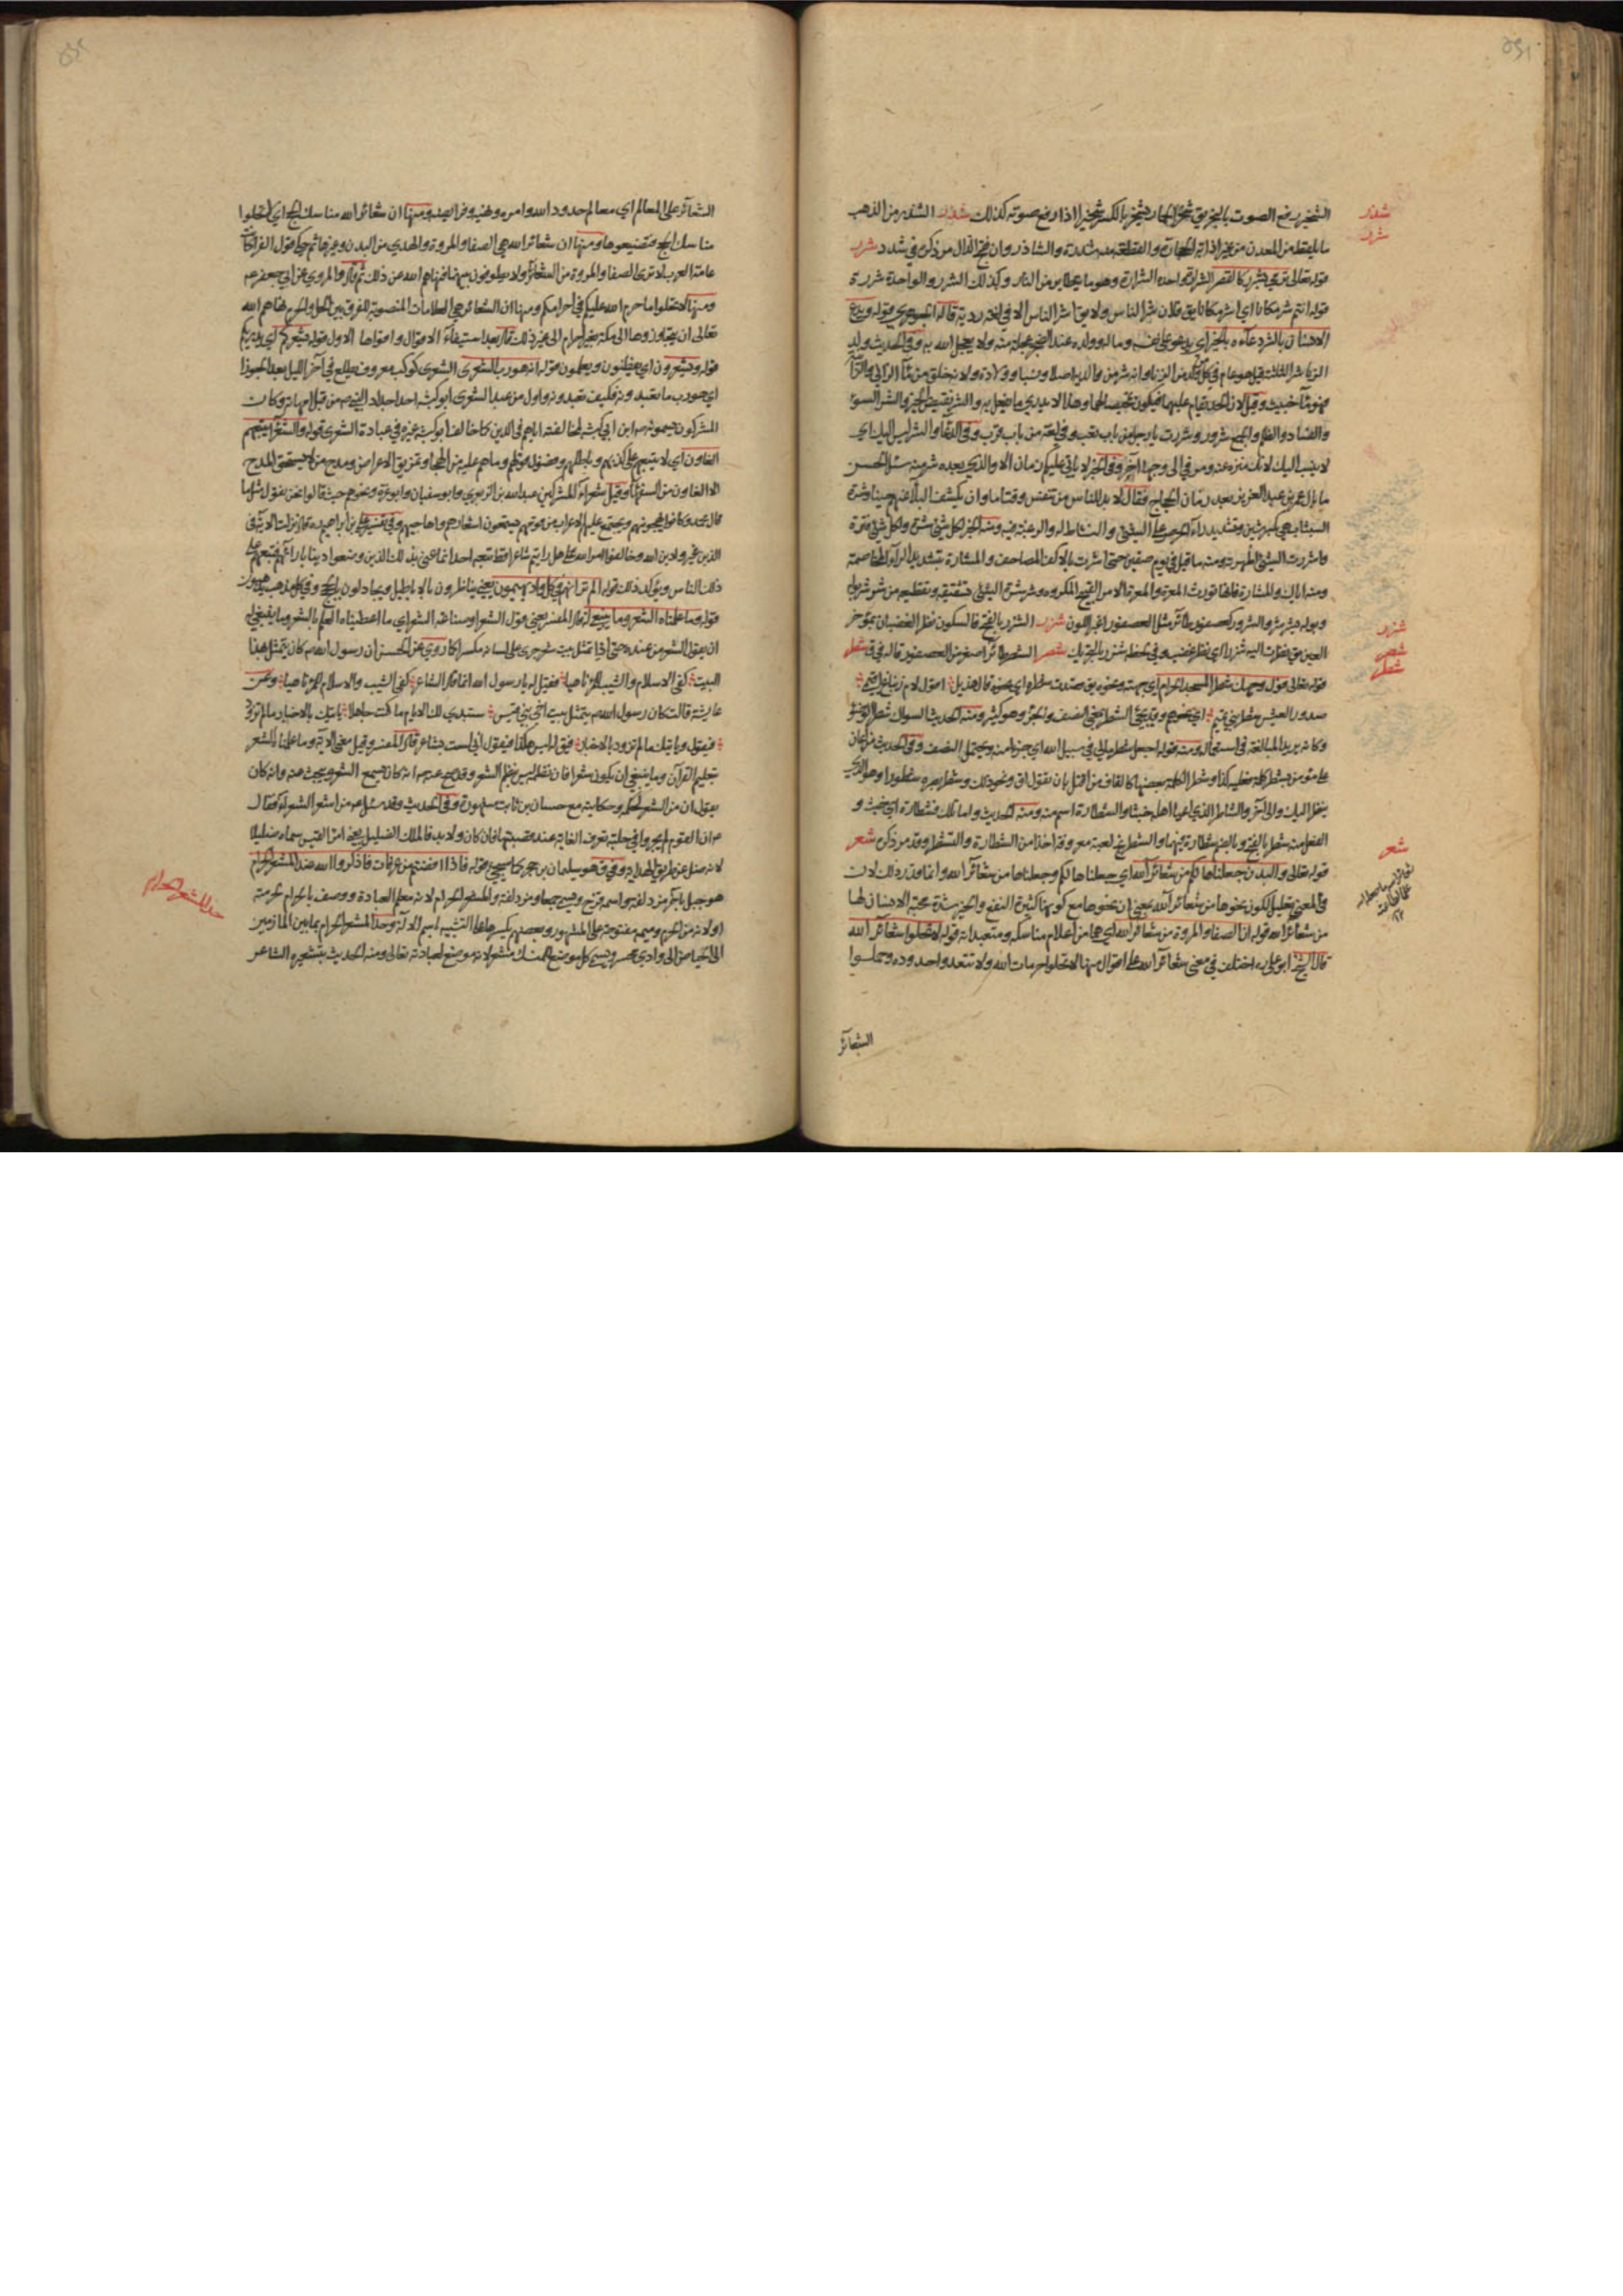 الشخير رفع الصوت بالنخر يق شخر الحمار يشخر بالكسر شخيرا اذا رفع صوته كذلك شذر الشذر من الذهب
ما يلتقط من المعدن من غير اذابة الحجارة والقطعة منه شذرة والشاذروان بفتح الذال من ذكره في شدد شرر
قوله تعالى ترمي بشرر كالقصر الشرر واحده الشرارة وهو ما يتطاير من النار وكذلك الشرر والواحدة شررة
قوله انتم شر مكانا اي اشر مكانا يق فلان شر الناس ولا يق اشر الناس الا في لغة ردية قاله الجوهري قوله ويدع
الانسان بالشر دعاءه بالخير اي يدعو على نفسه وماله وولده عند الضجر عجلة منه ولا يعجل الله به وفي الحديث ولد
الزنا شر الثلثة قيل هو عام في كل ولد من الزنا وانه شر من والديه اصلا ونسبا وولادة ولانه خلق من ماء الزاني والزانية
فهو ماء خبيث وقيل لان الحد يقام عليهما فيكون تمحيصا لهما وهذا لا يدري ما يفعل به والشر نقيض الخير والشر السوء
والفساد والظلم والجمع شرور وشررت يا رجل من باب تعب وفي لغة من باب قرب وفي الدعاء والشر ليس اليك اي
لا ينسب اليك لانك منزه عنه ومر في الى وجها آخر وفي الخبر لا ياتي عليكم زمان الا والذي بعده شر منه سئل الحسن
ما بال عمر بن عبد العزيز بعد زمان الحجاج فقال لا بد للناس من تنفيس وقتا ما وان يكشف البلاء عنهم حينا وشرة
الشباب هي بكسر شين وتشديد راء الحرص على الشيء والنشاط له والرغبة فيه ومنه الخبر لكل شيء شرة ولكل شيء فترة
واشررت الشيء اظهرته ومنه ما قيل في يوم صفين حتى اشرت بالاكف المصاحف والمشارة بتشديد الراء المخاصمة
ومنه اياك والمشارة فانها تورث المعرة والمعرة الامر القبيح المكروه وشرشرة الشيء تشقيقه وتقطيعه من شرشر بوله
وبوله يشرشر والشرشور كعصفور طائر مثل العصفور اغبر اللون شزر الشزر بالفتح فالسكون نظر الغضبان بمؤخر
العين يق نظرت اليه شزرا اي نظر غضب وفي لحظه شزر بالتحريك شصر الشصر طائر اصغر من العصفور قاله في ق شطر
قوله تعالى فول وجهك شطر المسجد الحرام اي جهته ونحوه يق قصدت شطره اي نحوه قال هذيل اقول لام زنباع اقيمي
صدور العيس شطر بني تميم اي نحوهم وقد يجيء الشطر بمعنى النصف والجزء وهو كثير ومنه الحديث السواك شطر الوضوء
وكانه يريد المبالغة في استعماله ومنه قوله اجعل شطر مالي في سبيل الله اي جزءا منه ويحتمل النصف وفي الحديث من اعان
على مؤمن بشطر كلمة فعليه كذا وشطر الكلمة بعضها كالقاف من اقتل بان يقول اق ونحو ذلك وشطر بصره شطورا وهو الذي
ينظر اليك والى آخر والشاطر الذي اعيا اهله خبثا والشطارة اسم منه ومنه الحديث واما تلك فشطارة اي خبث و
الفعل منه شطر بالفتح وبالضم شطارة فيهما والشطرنج لعبة معروفة اخذا من الشطارة والتشطر وقد مر ذكره شعر
قوله تعالى والبدن جعلناها لكم من شعائر الله اي جعلناها لكم وجعلناها من شعائر الله وانما قدر ذلك لان
في المعنى تعليل لكون نحوها من شعائر الله بمعنى ان نحوها مع كونها كثيرة النفع والخير شدة محبة الانسان لها
من شعائر الله قوله ان الصفا والمروة من شعائر الله اي هما من اعلام مناسكه ومتعبداته قوله لا تحلوا شعائر الله
قال الشيخ ابو علي ره اختلف في معنى شعائر الله على اقوال منها لا تحلوا حرمات الله ولا تتعدوا حدوده وحملوا
الشعائر
شذر
شرر
شزر
شصر
شطر
شعر
الشعائر على المعالم اي معالم حدود الله وامره ونهيه وفرائضه ومنها ان شعائر الله مناسك الحج اي لا تحلوا
مناسك الحج فتضيعوها ومنها ان شعائر الله هي الصفا والمروة والهدي من البدن وغيرها ثم حكى قول الفراء كانت
عامة العرب لا ترى الصفا والمروة من الشعائر ولا يطوفون بينهما فنهاهم الله عن ذلك ثم قال والمروي عن ابي جعفر عم
ومنها لا تحلوا ما حرم الله عليكم في احرامكم ومنها ان الشعائر هي العلامات المنصوبة للفرق بين الحل والحرم نهاهم الله
تعالى ان يتجاوزوها الى مكة بغير احرام الى غير ذلك ثم قال بعد استيفاء الاقوال واقواها الاول قوله يشعركم اي يدريكم
قوله ويشعرون اي يفطنون ويعلمون قوله انه هو رب الشعرى الشعرى كوكب معروف يطلع في آخر الليل بعد الجوزا
اي هو رب ما تعبدونه فكيف تعبدونه واول من عبد الشعرى ابو كبشة احد اجداد النبي ص من قبل امهاته وكانت
المشركون يسمونه ص ابن ابي كبشة لمخالفته اياهم في الدين كما خالف ابو كبشة غيره في عبادة الشعرى قوله والشعراء يتبعهم
الغاون اي لا يتبعهم على كذبهم وباطلهم وفضول قولهم وما هم عليه من الهجاء وتمزيق الاعراض ومدح من لا يستحق المدح
الا الغاون من السفهاء وقيل شعراء المشركين عبد الله بن الزبعرى وابو سفيان وابو غرة ونحوهم حيث قالوا نحن نقول مثل ما
قال محمد وكانوا يهجونهم ويجتمع عليهم الاعراب من قومهم يستمعون اشعارهم واهاجيهم وفي تفسير علي بن ابراهيم ره قال نزلت الآية في
الذين غيروا دين الله وخالفوا امر الله هل رايتم شاعرا قط تبعه احد انما عنى بذلك الذين وضعوا دينا بآرائهم فتبعهم على
ذلك الناس ويؤكد ذلك قوله الم تر انهم في كل واد يهيمون يعني يناظرون بالاباطيل ويجادلون بالحجج وفي كل مذهب يذهبون
قوله وما علمناه الشعر وما ينبغي له قال المفسر يعني قول الشعراء وصناعة الشعر اي ما اعطيناه العلم بالشعر وما ينبغي له
ان يقول الشعر من عنده حتى اذا تمثل بيت شعر جرى على لسانه مكسرا كما روي عن الحسن ان رسول الله ص كان يتمثل بهذا
البيت كفى الاسلام والشيب للمرء ناهيا فقيل له يا رسول الله انما قال الشاعر كفى الشيب والاسلام للمرء ناهيا وعن
عايشة قالت كان رسول الله ص يتمثل ببيت اخي بني قيس ستبدي لك الايام ما كنت جاهلا ياتيك بالاخبار ما لم تزود
فيقول وياتيك ما لم تزود بالاخبار فيق له ليس هكذا فيقول اني لست بشاعر قال المفسر وقيل معنى الآية وما علمناه الشعر
بتعليم القرآن وما ينبغي ان يكون شعرا فان نظمه ليس بنظم الشعر وقد صح عنه ص انه كان يسمع الشعر ويحث عنه وانه كان
يقول ان من الشعر لحكم وحكايته مع حسان بن ثابت مشهورة وفي الحديث وقد سئل عم من اشعر الشعراء فقال
ع ان القوم لم يجروا في حلبة تعرف الغاية عند قصبتها فان كان ولا بد فالملك الضليل يعني امرء القيس سماه ضليلا
لانه ضل عن طريق الهداية وفي ق هو سليمان بن حجر كما سيجيء قوله فاذا افضتم من عرفات فاذكروا الله عند المشعر الحرام
هو جبل بآخر مزدلفة واسمه قزح ويسمى جمعا ومزدلفة والمشعر الحرام لانه معلم العبادة ووصف بالحرام لحرمته
او لانه من الحرم وميمه مفتوحة على المشهور وبعضهم يكسرها على التشبيه باسم الآلة وحد المشعر الحرام ما بين المازمين
الى الحياض الى وادي محسر ويسمى كل موضع للمنسك مشعرا لانه موضع لعبادته تعالى ومنه الحديث
حد المشعر الحرام